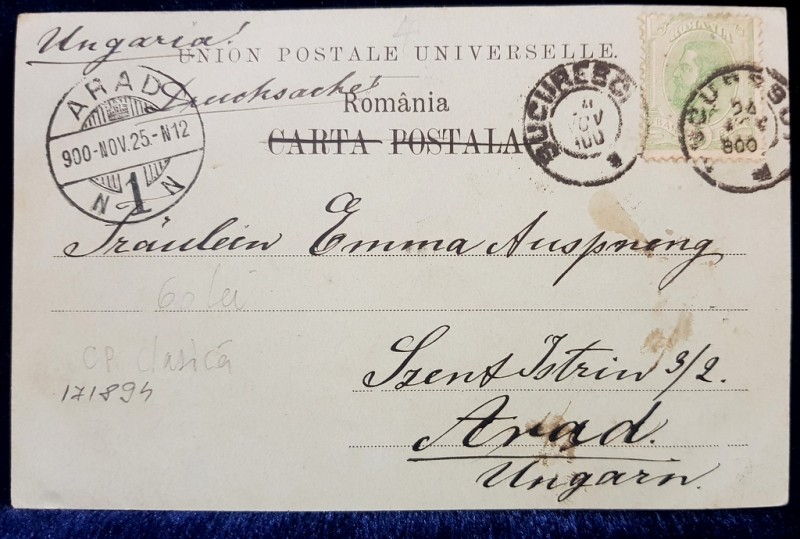 Ungaria!
UNION POSTALE UNIVERSELLE.
Drucksache!
România
CARTA POSTALA
ARAD
900-NOV.25.-N12
N 1 N
BUCURESCI
NOV
900
BUCURESCI
24
900
ROMANIA
Fräulein Emma Auspreng
60 lei
CP clasică
171894
Szent Istrin 3/2.
Arad.
Ungarn.